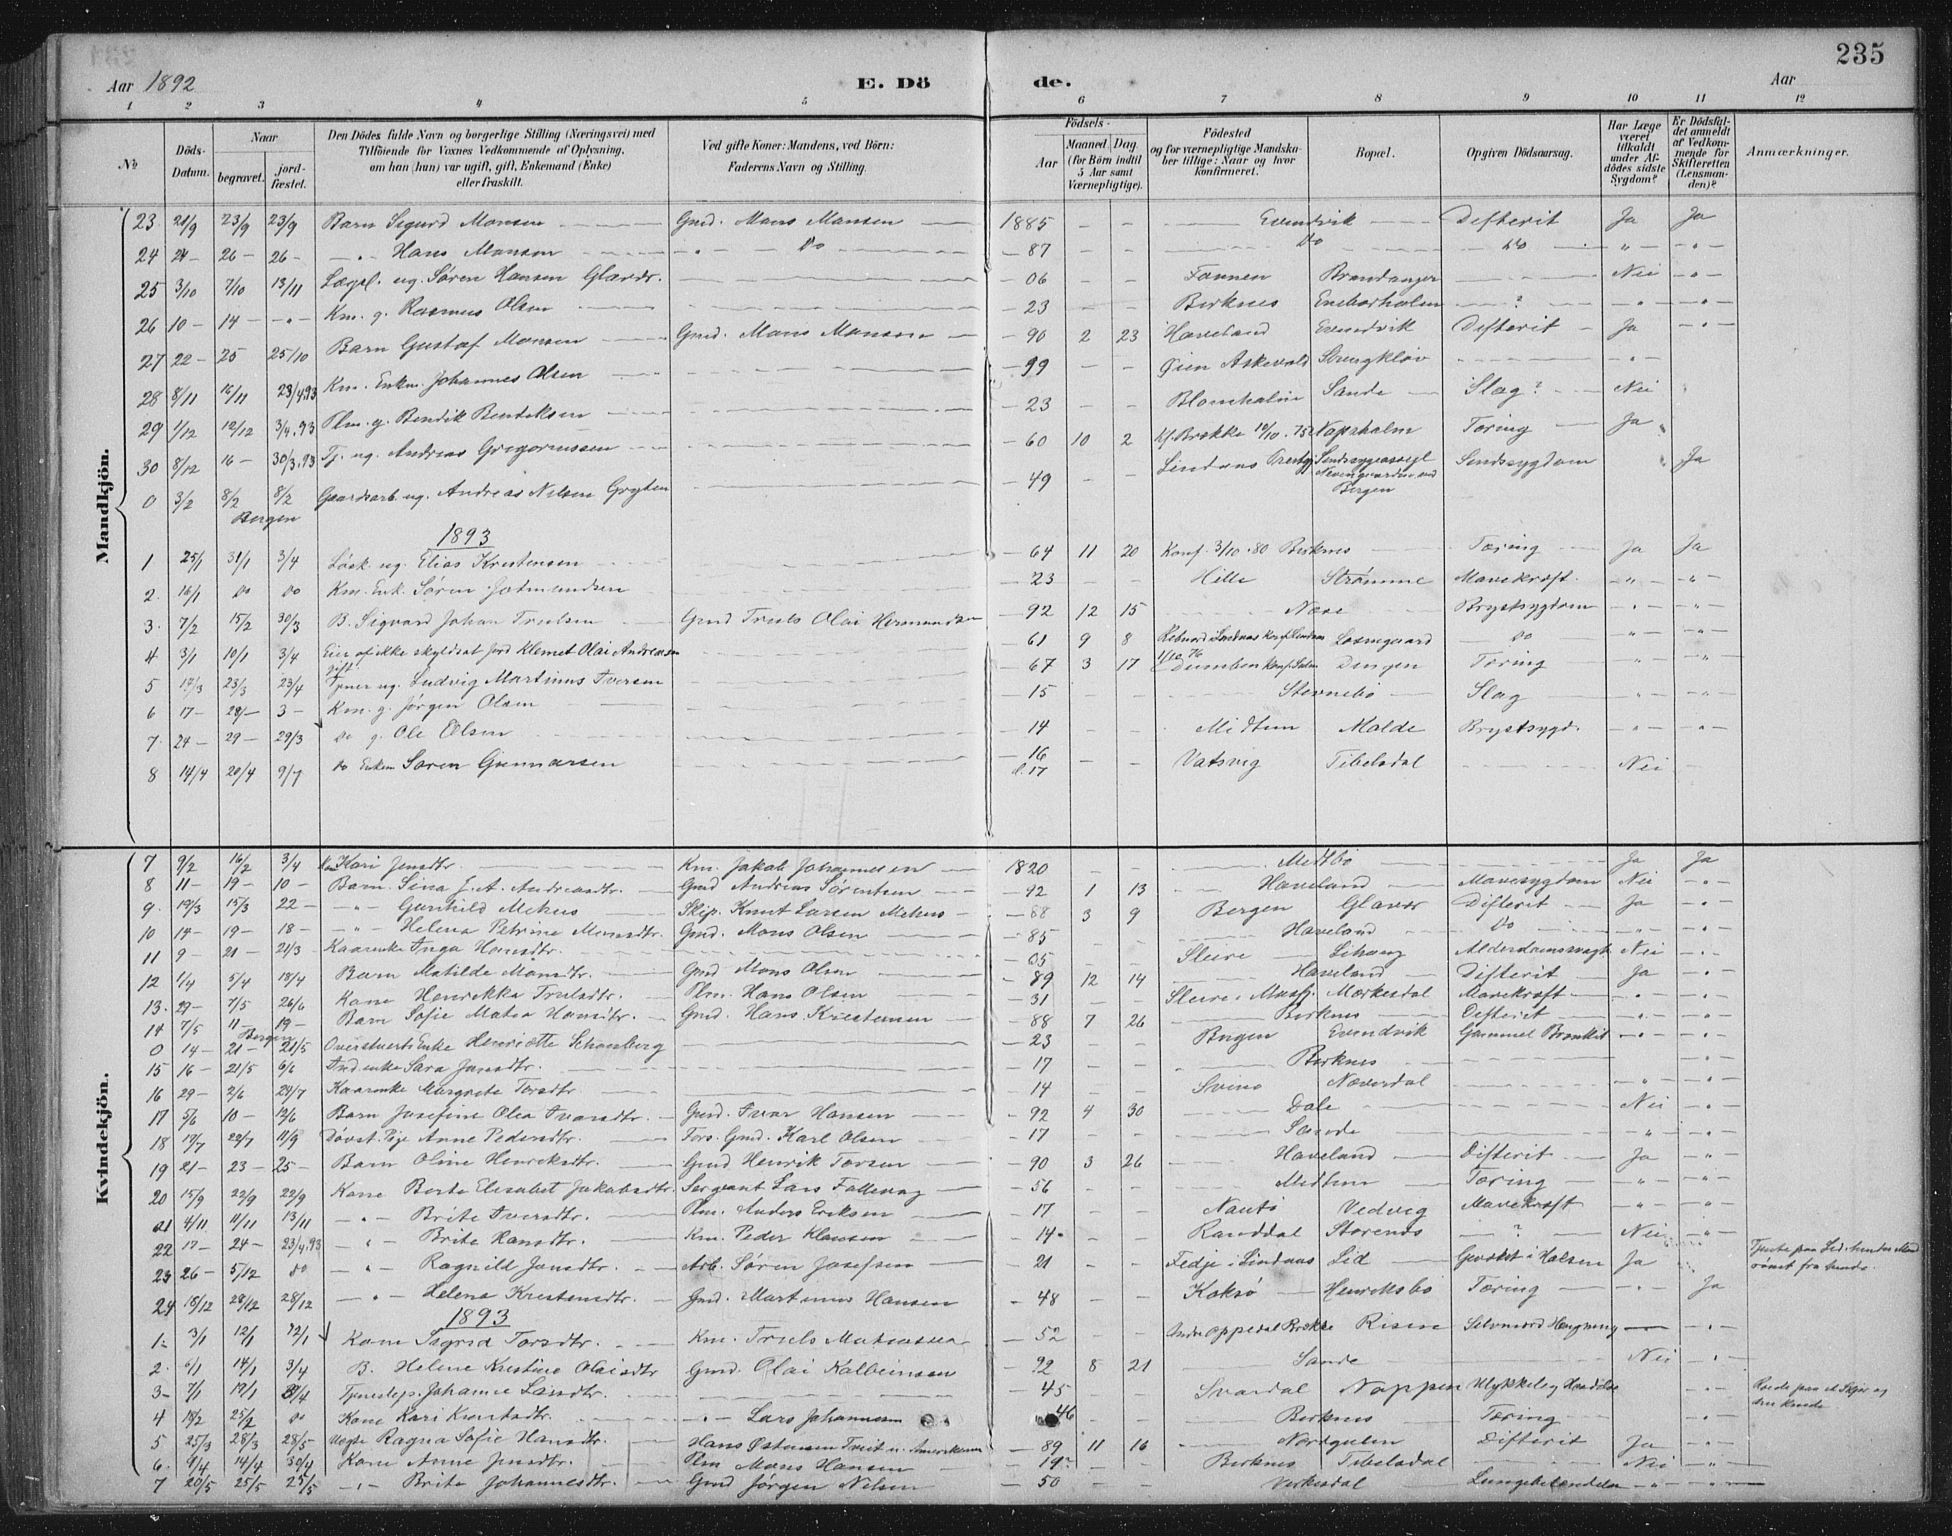 235
Aar 1892
E. Döde.
Aar
1 2 3 4 5 6 7 8 9 10 11 12
No
Döds-Datum.
Naar
begravet.
jord-fæstet.
Den Dödes fulde Navn og borgerlige Stilling (Næringsvei) med Tilföiende for Voxnes Vedkommende af Oplysning, om han (hun) var ugift, gift, Enkemand (Enke) eller fraskilt.
Ved gifte Koner: Mandens, ved Börn: Faderens Navn og Stilling.
Födsels-
Aar
Maaned. Dag
(for Börn indtil 5 Aar samt Værnepligtige).
Födested og for værnepligtige Mandskaber tillige: Naar og hvor konfirmeret.
Bopæl.
Opgiven Dödsaarsag.
Har Læge været tilkaldt under Afdödes sidste Sygdom?
Er Dödsfaldet anmeldt af Vedkommende for Skifteretten (Lensmanden)?
Anmærkninger.
Mandkjön.
23 21/9 23/9 23/9 Barn Sigurd Monsen Gmd. Mons Monsen 1885 - - Evendvik Difterit Ja Ja
24 24 - 26 - 26 - - " - Hans Monsen - " - Do - 87 - - Do Do " - " -
25 3/10 7/10 13/11 Lægsl. ug. Søren Hansen Glavær. - 06 - - Fonnen Brandanger Nei - " -
26 10 - 14 - - " - Km. g. Rasmus Olsen - 23 - - Birknes Eneborholm ? - " - - " -
27 22 - 25 25/10 Barn Gustaf Monsen Gmd. Mons Monsen - 90 2 23 Haveland Evendvik Difterit Ja - " -
28 8/11 16/11 23/4.93 Km. Enkm. Johannes Olsen - 99 - - Øien Askevold - " -
29 1/12 12/12 3/4.93 Plm. g. Bendik Bendiksen - 23 - - Blomholm Sande Slag? Nei
30 8/12 16 - 30/3.93 Tj. ug. Andreas Gregoriussen - 60 10 2 Kf. Brække 10/10.75 Napsholm Tæring Ja
0 3/2 8/2 8/2 Gaardsarb. ug. Andreas Nilsen Gryten - 49 - - Lindaas Sindssygeasyl Neevengaarden ved Bergen Sindssygdom Ja
Bergen
1893
1 25/1 31/1 3/4 Løsk. ug. Elias Kristensen - 64 11 20 Konf. 3/10.80 Birknes Tæring Ja Ja
2. 16/1 Do Do Km. Enk. Søren - 23 - - Hille Strømme Mavekræft. - " - - " -
3. 7/2 15/2 30/3 B. Sigvard Johan Trulsen Gmd Truls Olai Hermundsen - 92 12 15 Næse Brystsygdom - " - - " -
4 3/1 10/1 3/4 Eier af ikke skyldsat jord Klemet Olai Andreassen gift - 61 9 8 Lindaas Konf. Lindaas 1/10.76 Do " - " -
5 12/3 23/3 23/4 Tjener ug. Ludvig Martinus Iversen - 67 3 17 Dingen Tæring " - " -
6 17 - 28/- 3 - Km. g. Jørgen Olsen - 15 - - Stevnebø Slag - " - - " -
7. 24 - 29 - 29/3 Do g. Ole Olsen - 14 - - Midtun Molde Brystsygd. - " - - " -
8 14/4 20/4 9/7 Do Enkem Søren Gunnarsen - 16 - - Vatsvig Tibeldal Nei
Kvindekjön.
7 9/2 16/2 3/4 Kari Jensdtr. Km. Jakob Johannesen 1820 - Midtbø Ja Ja
8 11 - 19 - 10 - Barn Sina J. A. Andreasdtr. Gmd Andreas Sørensen - 92 1 13 Haveland Mavesygdom Nei - " -
9. 12/3 15/3 22 - - " - Gunhild Mehus Skip. Knut Larsen Mehus - 88 3 9 Bergen Glavær Difterit Ja - " -
10 14 - 19 - 18 - - " - Helena Petrine Monsdtr. Gmd. Mons Olsen - 85 - Haveland Do " - " -
11 9 - 21 - 21/3 Kaarenke Inga Hansdtr. - 05 - - Sleire Lihaug Alderdomssvagh Nei - " -
12 1/4 5/4 18/4 Barn Matilde Monsdtr. Gmd Mons Olsen - 89 12 14 Haveland Difterit Ja - " -
13. 29 - 7/5 26/6 Kone Henrikka Trulsdtr. Plm. Hans Olsen - 31 - Sleire i Masfj. Mærkesdal Mavekræft - " - - " -
14 7/5 11 - 19 - Barn Sofie Matea Hansdtr. Gmd. Hans Kristensen - 88 7 26 Birknes Difterit - " - - " -
0 14 - 21 - 21/5 Bergen Enke Henriette Schønberg - 23 - - Bergen Evendvik Gammel Bronkit - " - - " -
15 16 - 21/5 6/6 Inderste Sara Jansdtr. - 17 - - Birknes - " -
16 29 - 2/6 24/7 Kaarenke Margrete Torsdtr - 14 - - Svinø Næverdal " - " -
17 5/6 10 - 12/6 Barn Josefine Olea Ivarsdtr. Gmd. Ivar Hansen - 92 4 30 Dale Nei - " -
18 17/7 22/7 11/9 Døvst. Pige Anne Pedersdtr. Fors. Gmd. Karl Olsen - 17 - - Sande " - " -
19 21 - 23 - 25 - Barn Oline Henriksdtr. Gmd Henrik Torsen - 90 3 26 Haveland Difterit Ja - " -
20 15/9 22/9 22/9 Kone Berte Elisabet Jakobsdtr. Sergeant Lars Fallevag - 56 - - Midtun Tæring - " - - " -
21 4/11 11/11 13/11 - " - Brite Iversdtr. Plm. Anders Eriksen - 17 - - Nautø Vedvig Mavekræft - " - - " -
22 17 - 24 - 23/4.93 - " - Brite Hansdtr. Km. Peder Klausen - 14 - - Randdal Storenes ? Nei - " -
23 26 - 5/12 Do - " - Ragnild Jansdtr. Arb. Søren Josefsen - 21 - - Fedje i Lindaas Lid Gevækst i Halsen Ja
24 18/12 28/12 28/12 - " - Helena Kristensdtr. Gmd. Martinus Hansen - 48 - - Koksø Henriksbø Tæring - " - Ja
1893
1. 3/1 12/1 12/1 Kone Sigrid Torsdtr. Km. Truls - 52 - - Brække Risne Selvmord Hængning - " -
2. 6/1 14/1 3/4 B. Helene Kristine Olaisdtr Gmd. Olai Kolbeinsen - 92 8 21 Sande Nei - " -
3 - 7/1 12/1 8/4 Tjenestep. Johanne Larsdtr. - 45 - - Svardal Nappen - " -
4 18/2 25/2 Do Kone Kari - " - Lars Johannesen - 46 - - Birknes Tæring - " -
5 25/3 28/3 28/5 Ragna Sofie Hansdtr. Hans Østensen - 89 11 16 Nordgulen Difterit Ja - " -
6. 9/4 14/4 30/4 Kone Anne Jensdtr. Plm Mons Hansen - 19 - - Birknes Tibeldal Nei - " -
7 20/5 25/5 25/5 - " - Brite Johannesdtr. Gmd Jørgen Nilsen - 50 - - Verkesdal Lungebetændelse - " - - " -